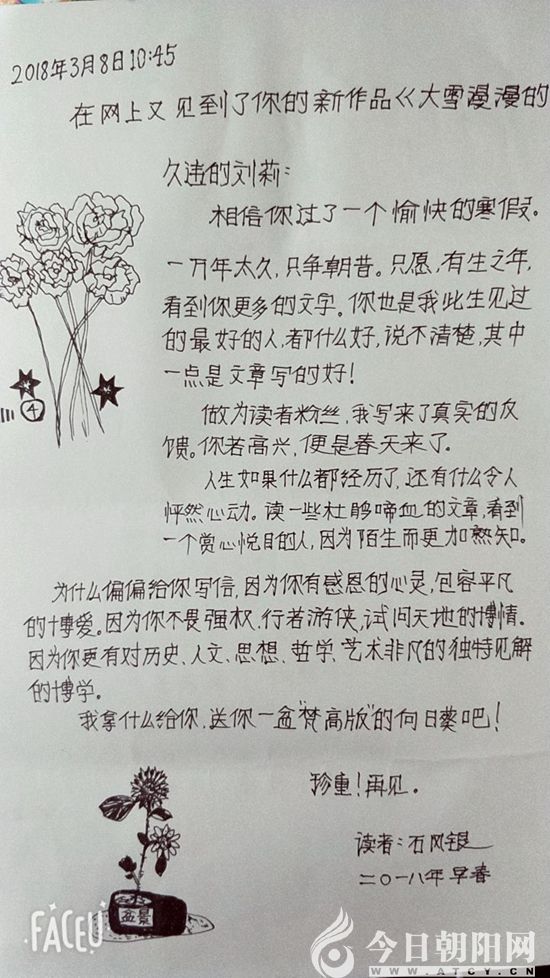 2018年3月8日10:45
在网上又见到了你的新作品《大雪漫漫的
久违的刘莉：
相信你过了一个愉快的寒假。
一万年太久，只争朝昔。只愿，有生之年，
看到你更多的文字。你也是我此生见过
的最好的人，都什么好，说不清楚，其中
一点是文章写的好！
做为读者粉丝，我写来了真实的反
馈。你若高兴，便是春天来了。
人生如果什么都经历了，还有什么令人
怦然心动。读一些杜鹃啼血的文章，看到
一个赏心悦目的人，因为陌生而更加熟知。
为什么偏偏给你写信，因为你有感恩的心灵，包容平凡
的博爱。因为你不畏强权、行者游侠，试问天地的博情。
因为你更有对历史、人文、思想、哲学、艺术非凡的独特见解
的博学。
我拿什么给你，送你一盆“梵高版”的向日葵吧！
珍重！再见。
读者：石风银
二〇一八年早春
4
盆景
FACEU
今日朝阳网
WWW.ATCY.CN